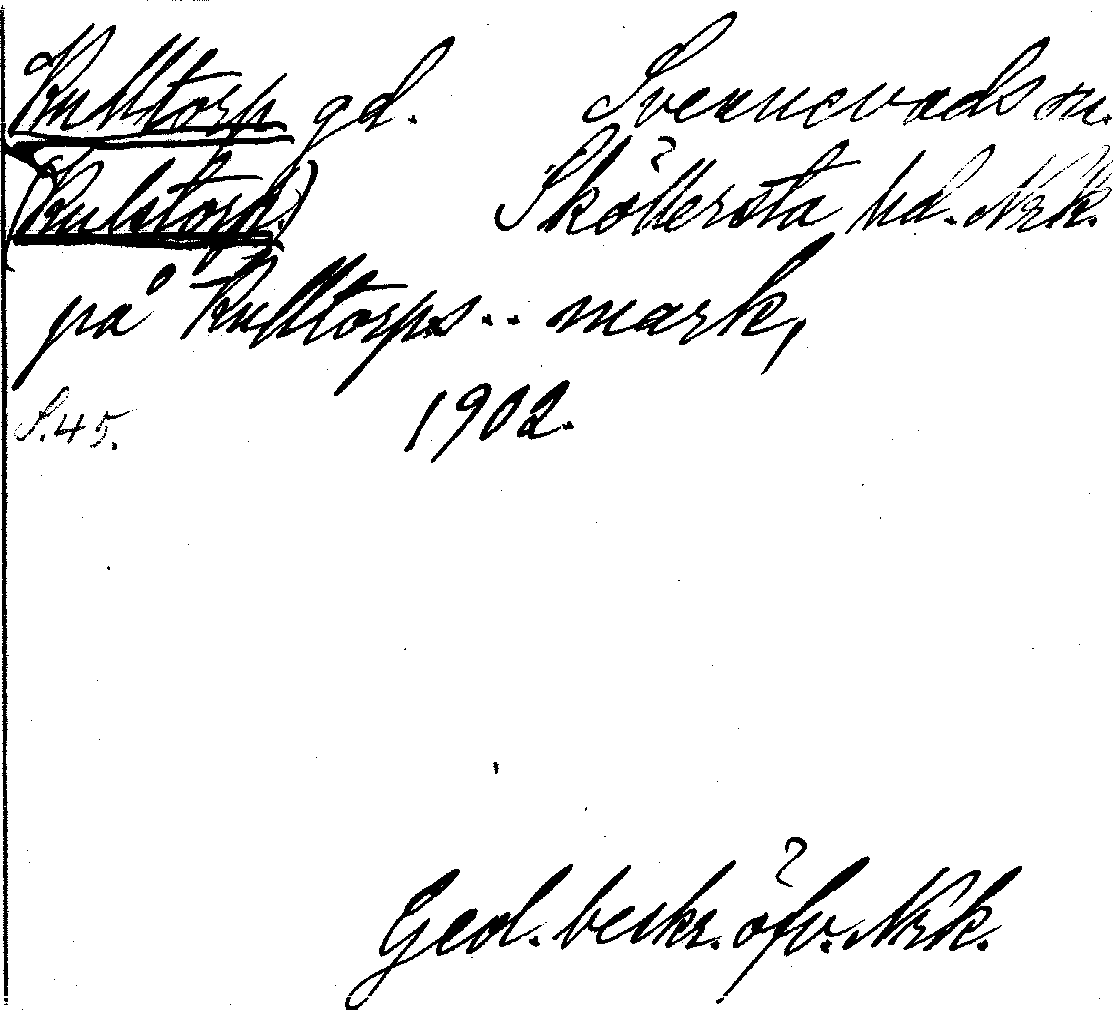 Kulltorp gd. Svennevads sn.
(Kulstorp.) Sköllersta hd. Nrk.
på Kulltorps.. mark,
S.45. 1902.
Geol. beskr. öfv. Nrk.